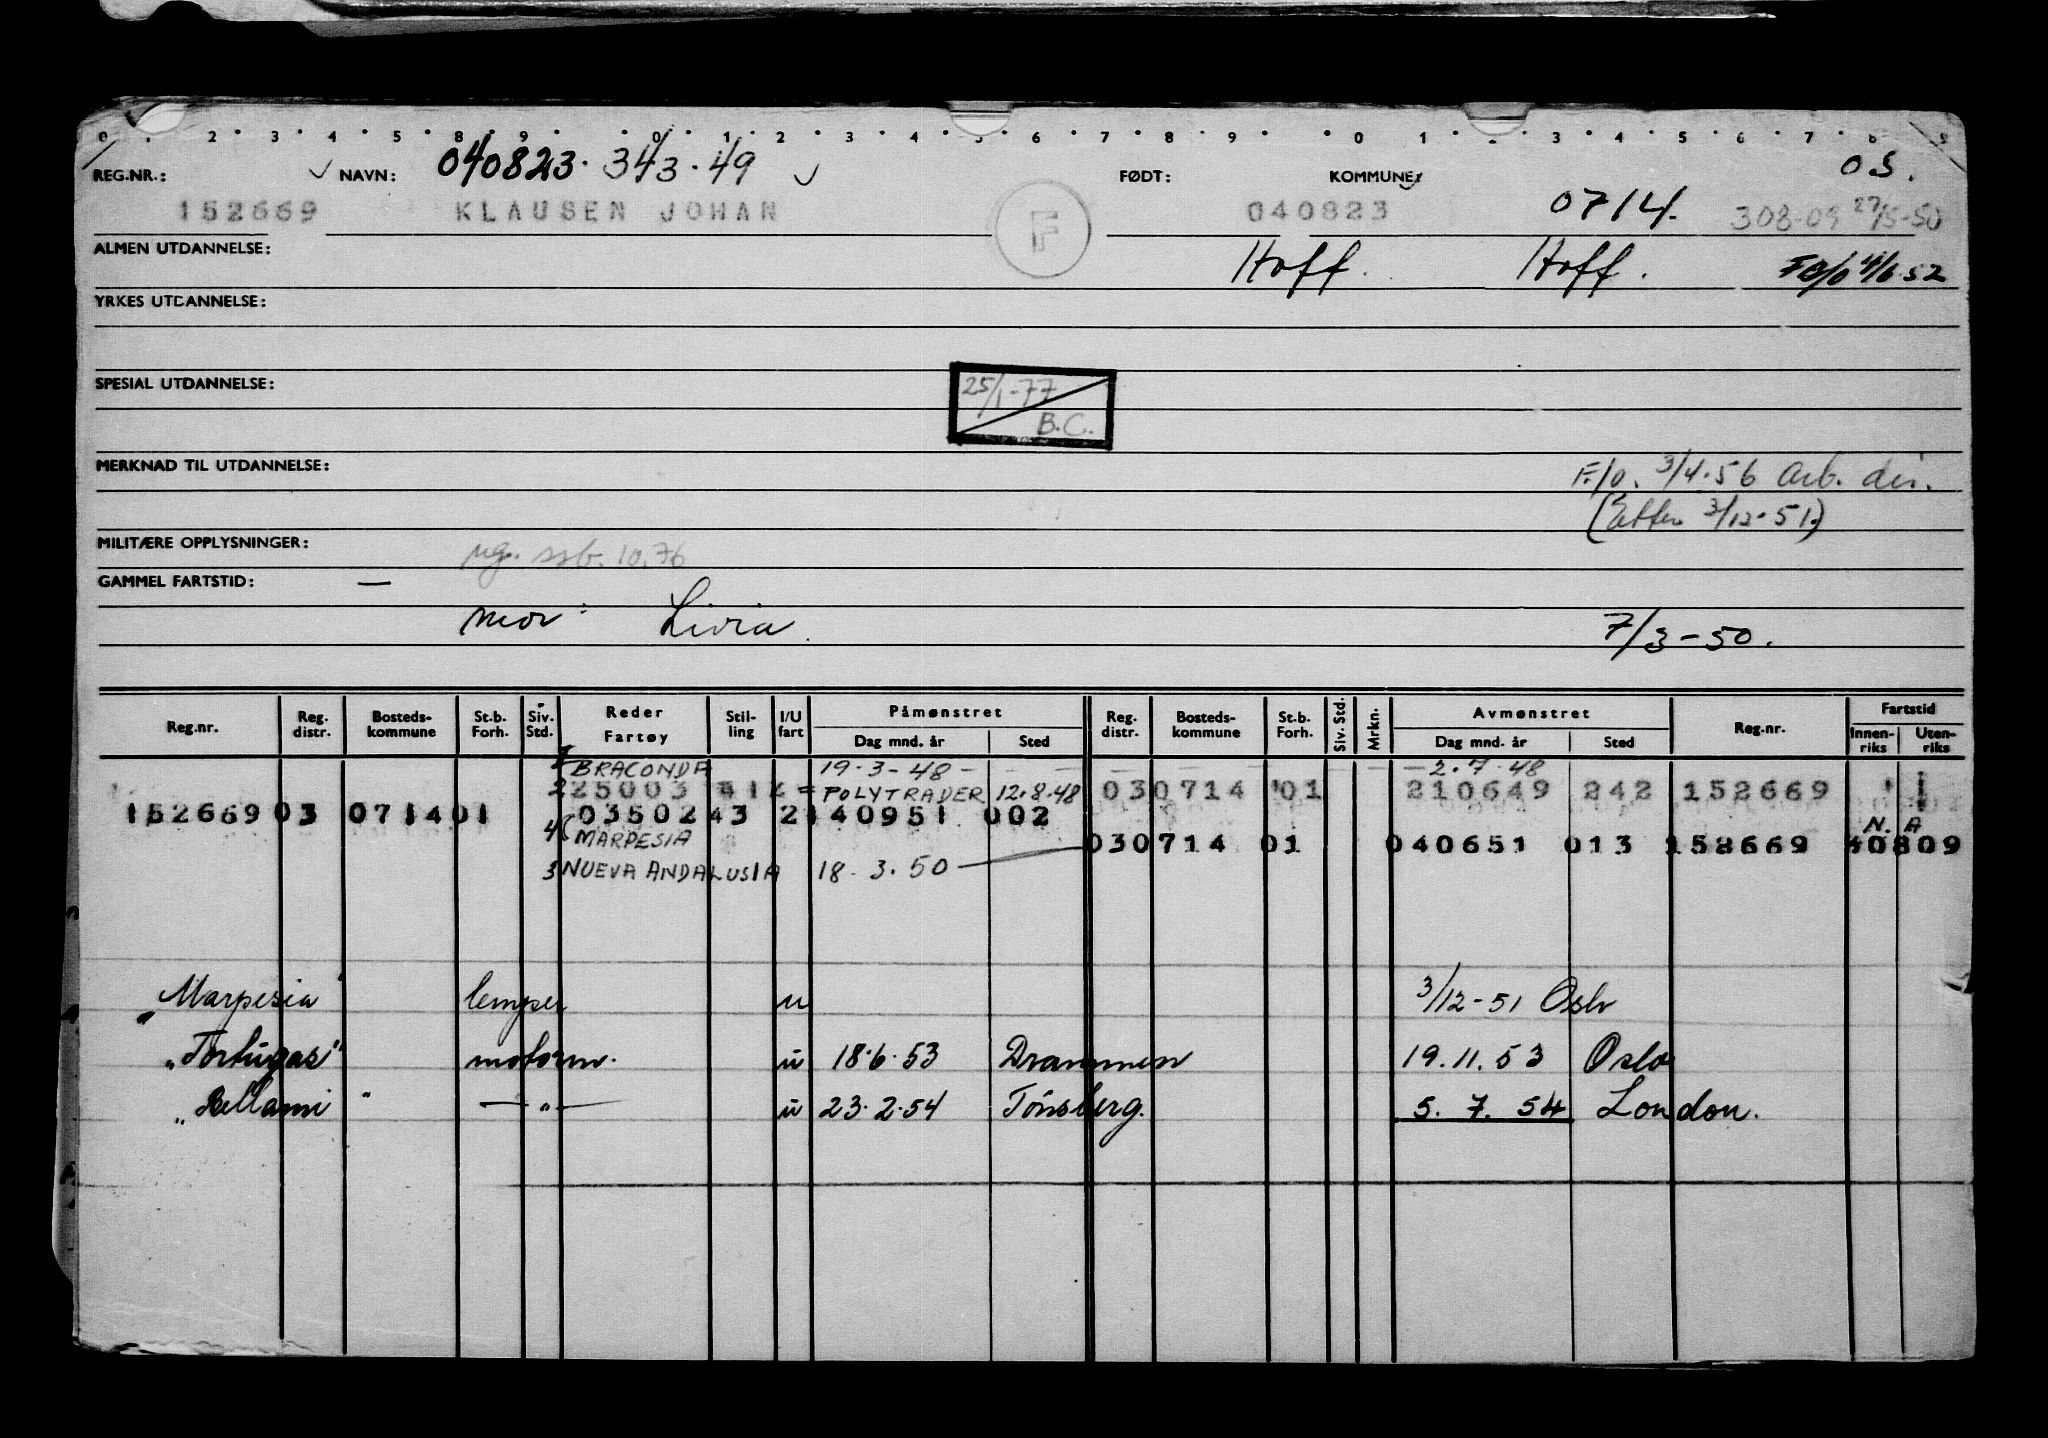 0 . 2 . 3 . 4 . 5 . 8 . 9 . . 0 . 1 . 2 . 3 . 4 . 5 . 6 . 7 . 8 . 9 . . 0 . 1 . 2 . 3 . 4 . 5 . 6 . 7 . 8 . 9
REG.NR.: NAVN: 040823. 343.49 FØDT: KOMMUNE: OS.
152669 KLAUSEN JOHAN F 040823 0714. 308-09 27/5-50
ALMEN UTDANNELSE: Hoff. Hoff. 4/6 52
YRKES UTDANNELSE:
SPESIAL UTDANNELSE: 25/1-77
B.C.
MERKNAD TIL UTDANNELSE: F.lo. 3/4.56 Arb. dir.
(Etter 3/12-51.)
MILITÆRE OPPLYSNINGER: ssb. 10.76
GAMMEL FARTSTID: —
mor: Livia 7/3-50.
Reg.nr. Reg. distr. Bosteds-kommune St.b. Forh. Siv. Std. Reder Fartøy Stil-ling I/U fart Påmønstret Dag mnd. år Sted Reg. distr. Bosteds-kommune St.b. Forh. Siv. Std. Mrkn. Avmønstret Dag mnd. år Sted Reg.nr. Fartstid Innen-riks Uten-riks
BRACONDA 19-3-48 - 2.7.48
2 25003 412 = POLYTRADER 12.8.48 030714 01 210649 242 152669
152669 03 0714 01 03502 43 2 140951 002
4 MARPESIA 030714 01 040651 013 152669 N. A 40809
3 NUEVA ANDALUSIA 18.3.50
"Marpesia" lemper u 3/12-51 Oslo
"Tortugas" motorm. u 18.6.53 Drammen 19.11.53 Oslo
"Bellami" — " — u 23.2.54 Tönsberg. 5.7.54 London.